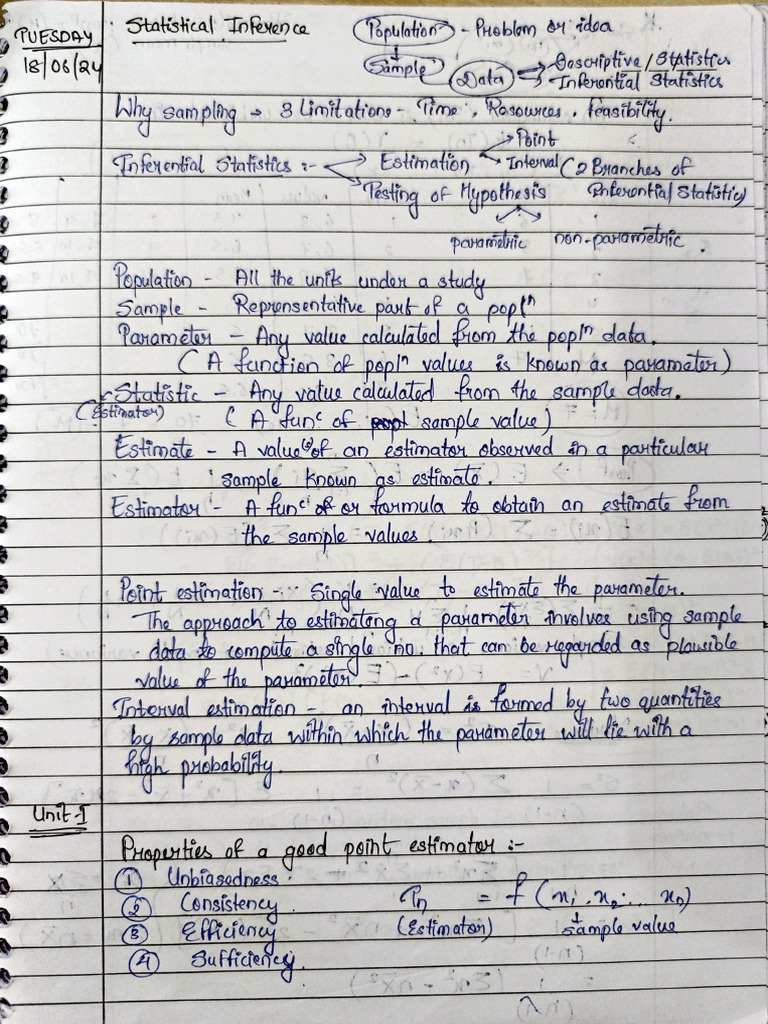 TUESDAY
18/06/24
Statistical Inference
Population - Problem or idea
Sample
Data
Descriptive / Statistics
Inferential Statistics
Why Sampling → 3 Limitations - Time, Resources, feasibility.
Inferential Statistics :-
Estimation
Point
Interval
Testing of Hypothesis
parametric
non-parametric.
(2 Branches of
Inferential Statistic)
Population - All the units under a study
Sample - Reprensentative part of a poplⁿ
Parameter - Any value calculated from the poplⁿ data.
(A function of poplⁿ values is known as parameter)
Statistic - Any value calculated from the sample data.
(Estimator)
(A funᶜ of popl sample value)
Estimate - A value(s) of an estimator observed in a particular
sample known as estimate.
Estimator - A funᶜ of or formula to obtain an estimate from
the sample values.
Point estimation - Single value to estimate the parameter.
The approach to estimating a parameter involves using sample
data to compute a single no. that can be regarded as plausible
value of the parameter.
Interval estimation - an interval is formed by two quantities
by sample data within which the parameter will lie with a
high probability.
Unit-I
Properties of a good point estimator :-
① Unbiasedness.
② Consistency.
③ Efficiency
④ Sufficiency.
Tn = f (x₁, x₂ ... xn)
(Estimator)
sample value